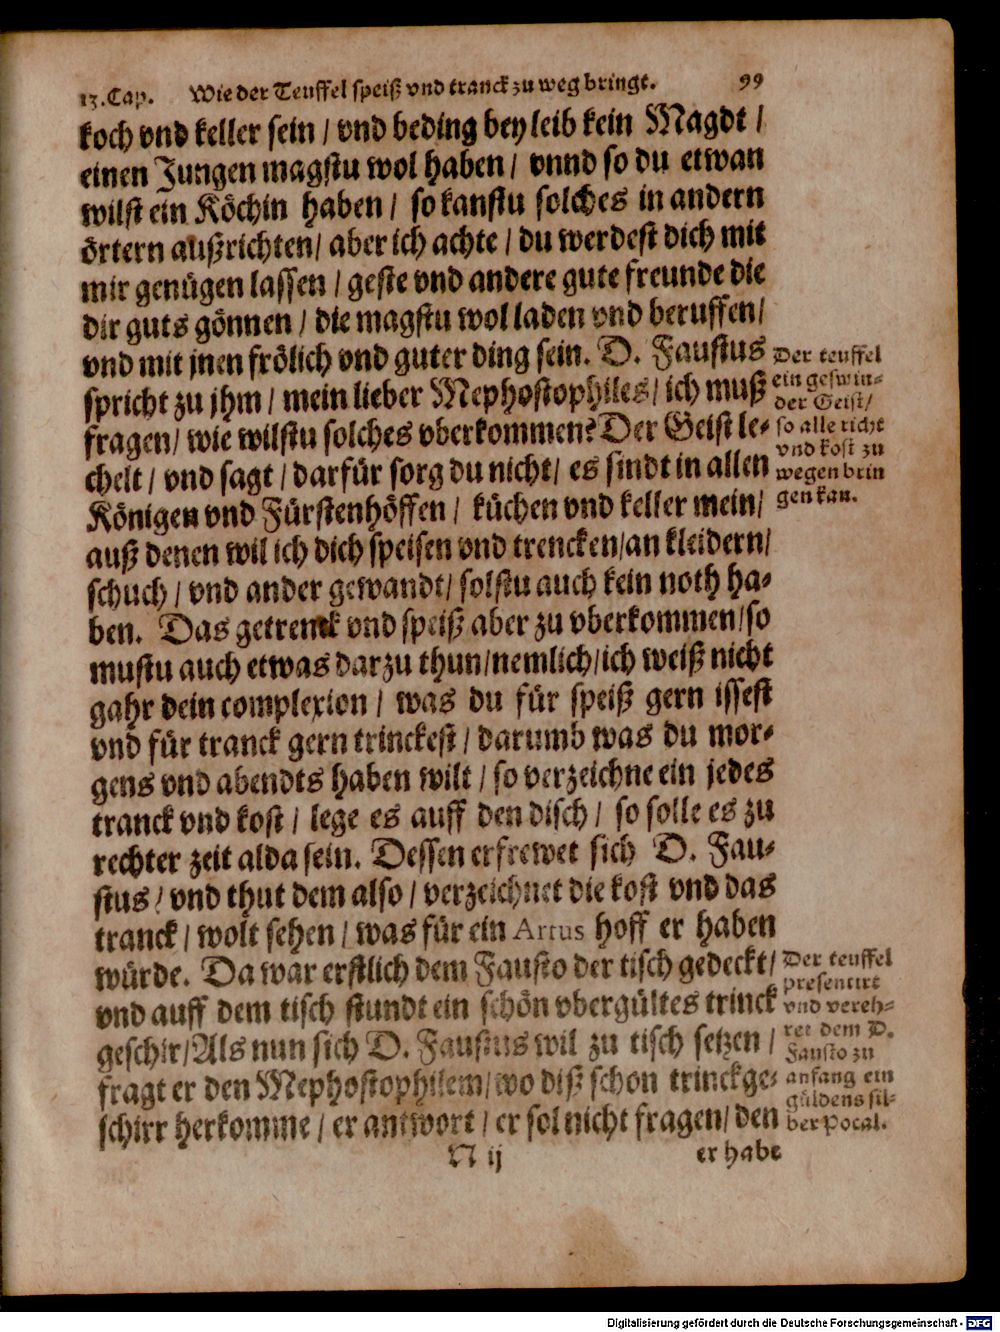 13. Cap. Wie der Teuffel speiß vnd tranck zu weg bringt. 99
koch vnd keller sein / vnd beding bey leib kein Magdt /
einen Jungen magstu wol haben / vnnd so du etwan
wilst ein Köchin haben / so kanstu solches in andern
örtern außrichten / aber ich achte / du werdest dich mit
mir genügen lassen / geste vnd andere gute freunde die
dir guts gönnen / die magstu wol laden vnd beruffen /
vnd mit jnen frölich vnd guter ding sein. D. Faustus
spricht zu jhm / mein lieber Mephostophiles / ich muß
fragen / wie wilstu solches vberkommen? Der Geist le-
chelt / vnd sagt / darfür sorg du nicht / es sindt in allen
Königen vnd Fürstenhöffen / küchen vnd keller mein /
auß denen wil ich dich speisen vnd trencken / an kleidern /
schuch / vnd ander gewandt / solstu auch kein noth ha-
ben. Das getrenck vnd speiß aber zu vberkommen / so
mustu auch etwas darzu thun / nemlich / ich weiß nicht
gahr dein complexion / was du für speiß gern issest
vnd für tranck gern trinckest / darumb was du mor-
gens vnd abendts haben wilt / so verzeichne ein jedes
tranck vnd kost / lege es auff den disch / so solle es zu
rechter zeit alda sein. Dessen erfrewet sich D. Fau-
stus / vnd thut dem also / verzeichnet die kost vnd das
tranck / wolt sehen / was für ein Artus hoff er haben
würde. Da war erstlich dem Fausto der tisch gedeckt /
vnd auff dem tisch stundt ein schön vbergültes trinck
geschir / Als nun sich D. Faustus wil zu tisch setzen /
fragt er den Mephostophilem / wo diß schon trinckge-
schirr herkomme / er antwort / er sol nicht fragen / den
N ij er habe
Der teuffel
ein geswin-
der Geist /
so alle richt
vnd kost zu
wegen brin
gen kan.
Der teuffel
presentirt
vnd vereh-
ret dem D.
Fausto zu
anfang ein
güldens sil-
ber Pocal.
Digitalisierung gefördert durch die Deutsche Forschungsgemeinschaft - DFG